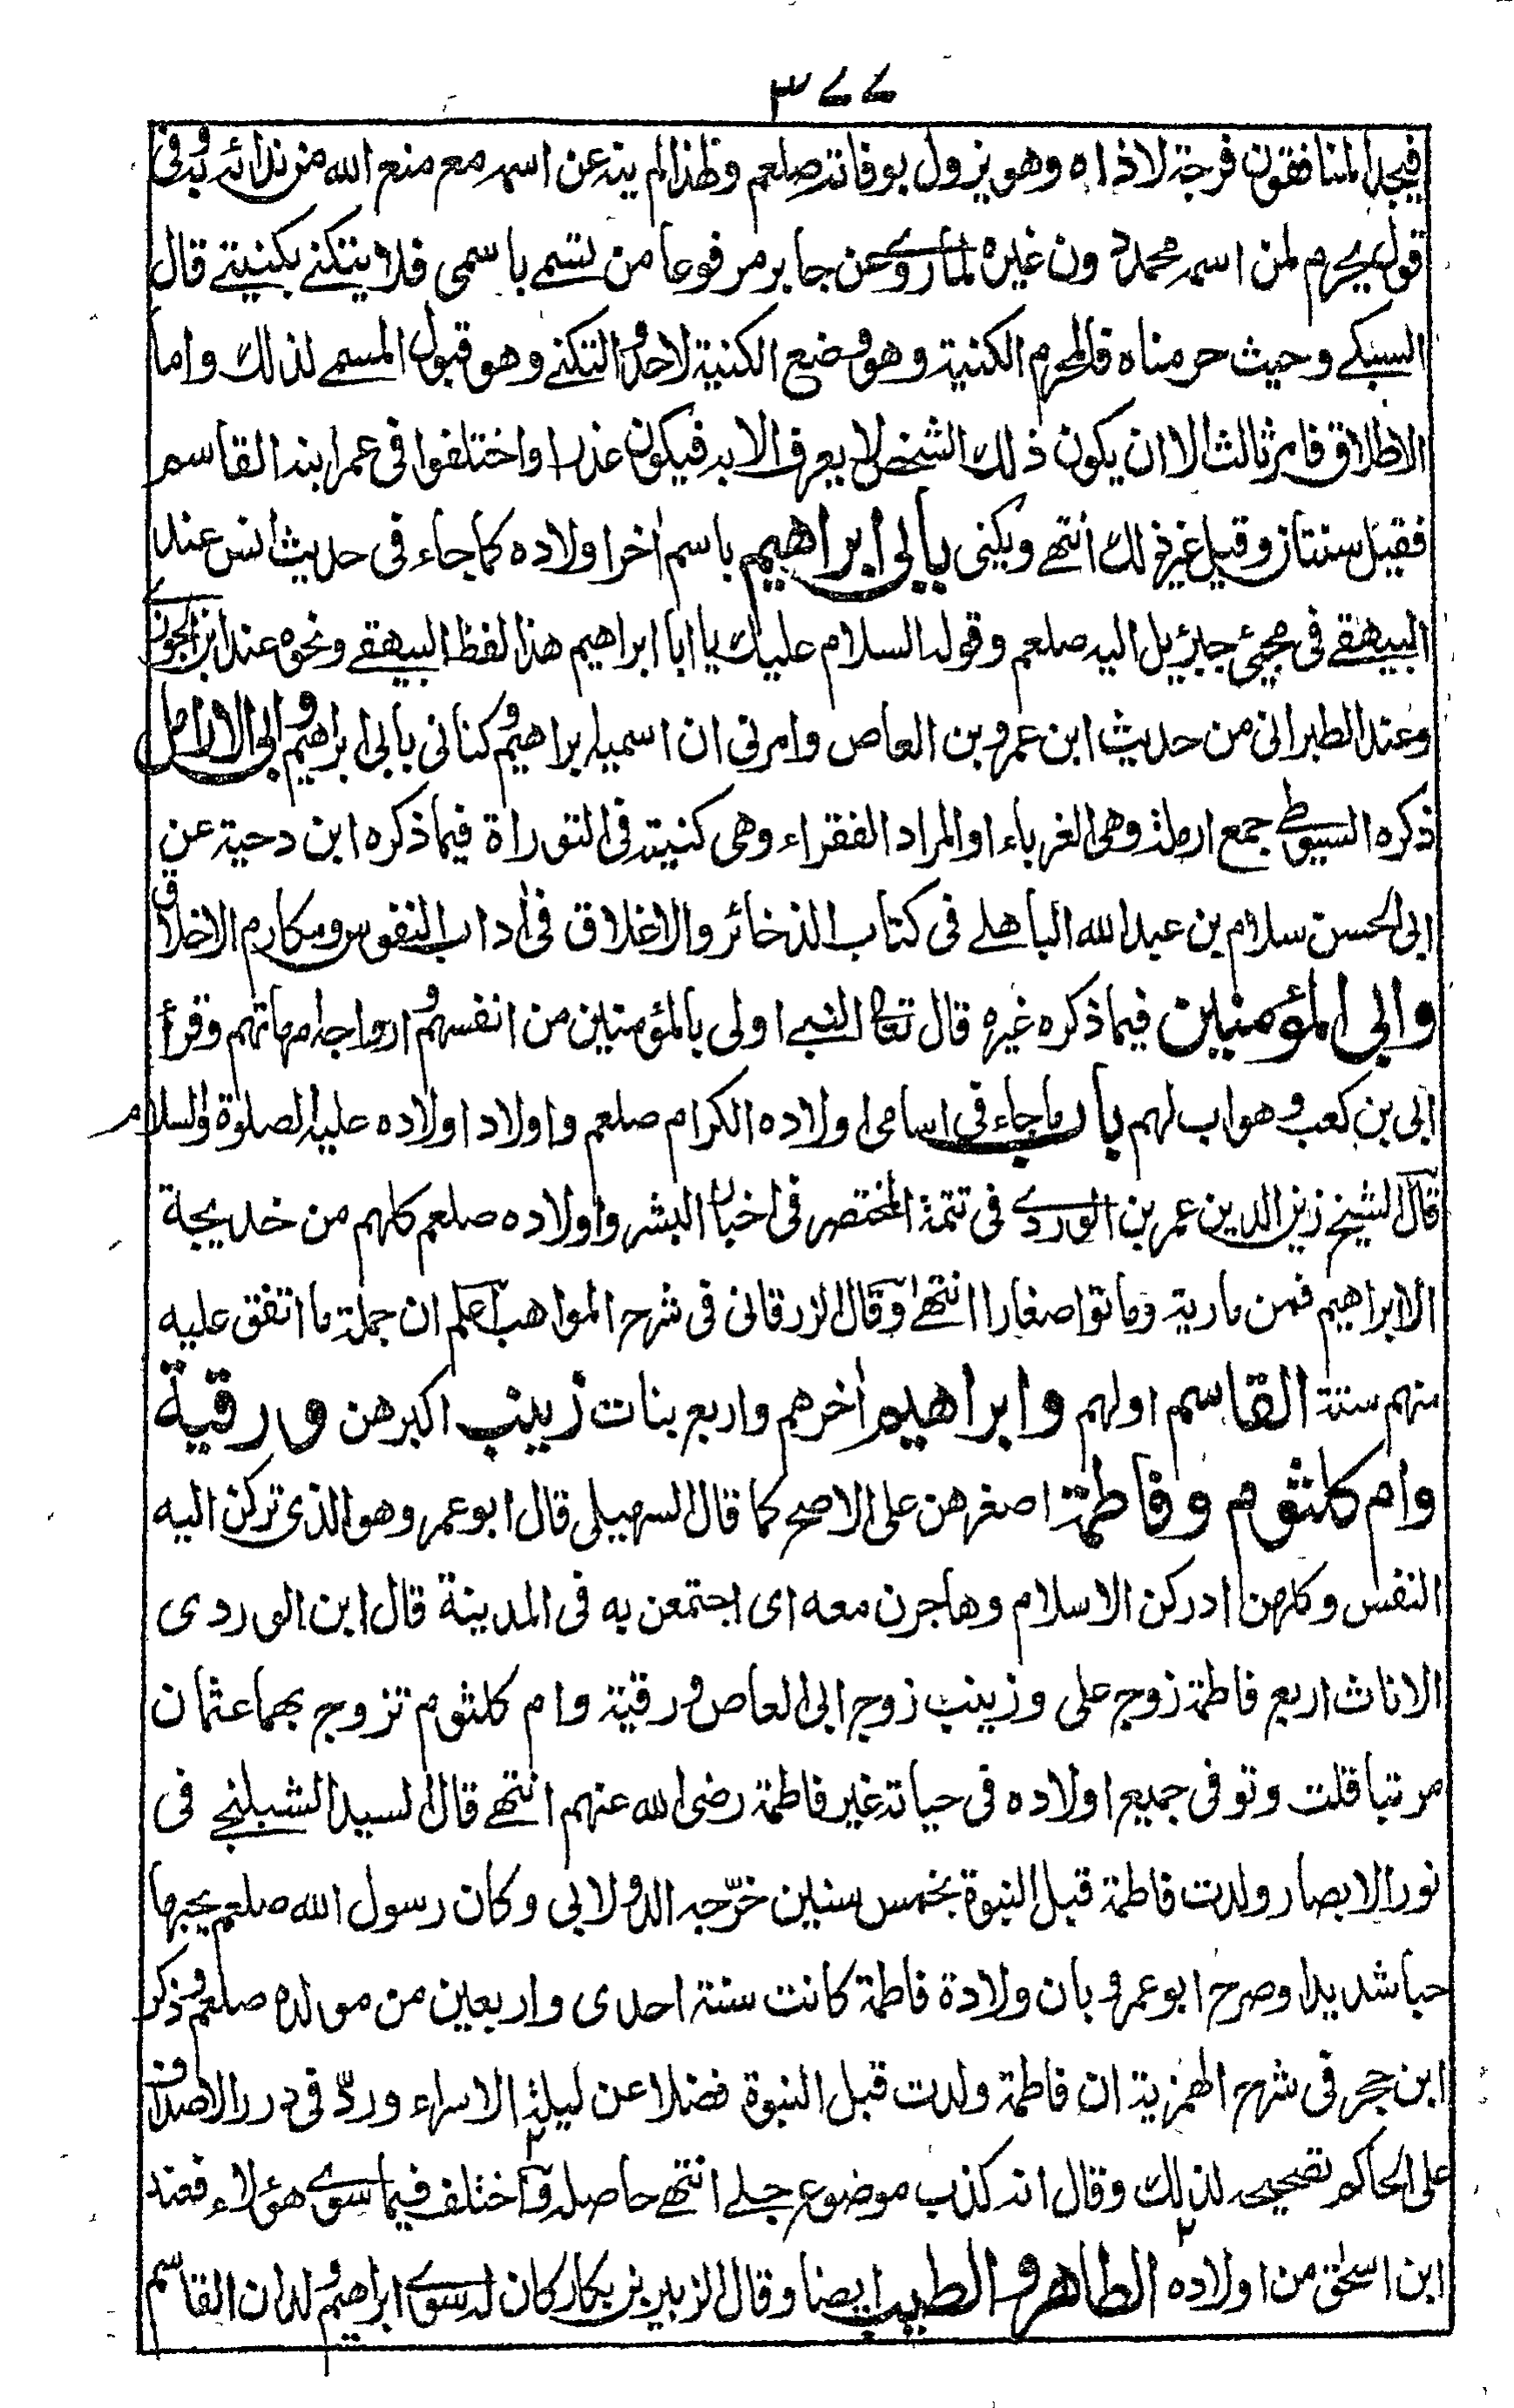 ٣٧٧
فيجد المنافقون فرجة لاذاه وهو يزول بوفاته صلعم ولهذا لم ينه عن اسمه مع منع الله من ندائه به وفى
قول يحرم لمن اسمه محمد دون غيره لما روى عن جابر مرفوعا من تسمى باسمى فلا يتكنى بكنيتى قال
السبكى وحيث حرمناه فالمحرم الكنية وهو وضع الكنية لاحد والتكنى وهو قبول المسمى لذلك واما
الاطلاق فامر ثالث الا ان يكون ذلك الشخص لا يعرف الا به فيكون عذرا واختلفوا فى عمر ابنه القاسم
فقيل سنتان وقيل غير ذلك انتهى ويكنى بابى ابراهيم باسم اخر اولاده كما جاء فى حديث انس عند
البيهقى فى مجيئ جبرئيل اليه صلعم وقوله السلام عليك يا ابا ابراهيم هذا لفظ البيهقى ونحوه عند ابن الجوزى
وعند الطبرانى من حديث ابن عمرو بن العاص وامرنى ان اسميه ابراهيم وكنانى بابى ابراهيم وابى الارامل
ذكره السيوطى جمع ارملة وهى الغرباء او المراد الفقراء وهى كنيته فى التوراة فيما ذكره ابن دحية عن
ابى الحسن سلام بن عبد الله الباهلى فى كتاب الذخائر والاغلاق فى اداب النفوس ومكارم الاخلاق
وابى المؤمنين فيما ذكره غيره قال تعالى النبى اولى بالمؤمنين من انفسهم وازواجه امهاتهم وقرأ
ابى بن كعب وهو اب لهم باب ما جاء فى اسامى اولاده الكرام صلعم واولاد اولاده عليه الصلوة والسلام
قال الشيخ زين الدين عمر بن الوردى فى تتمة المختصر فى اخبار البشر واولاده صلعم كلهم من خديجة
الا ابراهيم فمن مارية وماتوا صغارا انتهى وقال الزرقانى فى شرح المواهب اعلم ان جملة ما اتفق عليه
منهم ستة القاسم اولهم وابراهيم اخرهم واربع بنات زينب اكبرهن ورقية
وام كلثوم وفاطمة اصغرهن على الاصح كما قال السهيلى قال ابو عمر وهو الذى تركن اليه
النفس وكلهن ادركن الاسلام وهاجرن معه اى اجتمعن به فى المدينة قال ابن الوردى
الاناث اربع فاطمة زوج على وزينب زوج ابى العاص ورقية وام كلثوم تزوج بهما عثمان
مرتبا قلت وتوفى جميع اولاده فى حياته غير فاطمة رضى الله عنهم انتهى قال السيد الشبلنجى فى
نور الابصار ولدت فاطمة قبل النبوة بخمس سنين خرّجه الدولابى وكان رسول الله صلعم يحبها
حبا شديدا وصرح ابو عمرو بان ولادة فاطمة كانت سنة احدى واربعين من مولده صلعم وذكر
ابن حجر فى شرح الهمزية ان فاطمة ولدت قبل النبوة فضلا عن ليلة الاسراء وردّ فى درر الاصداف
على الحاكم تصحيحه لذلك وقال انه كذب موضوع جلى انتهى حاصله واختلف فيما سوى هؤلاء فعند
ابن اسحق من اولاده الطاهر والطيب ايضا وقال الزبير بن بكار كان له سوى ابراهيم ولدان القاسم